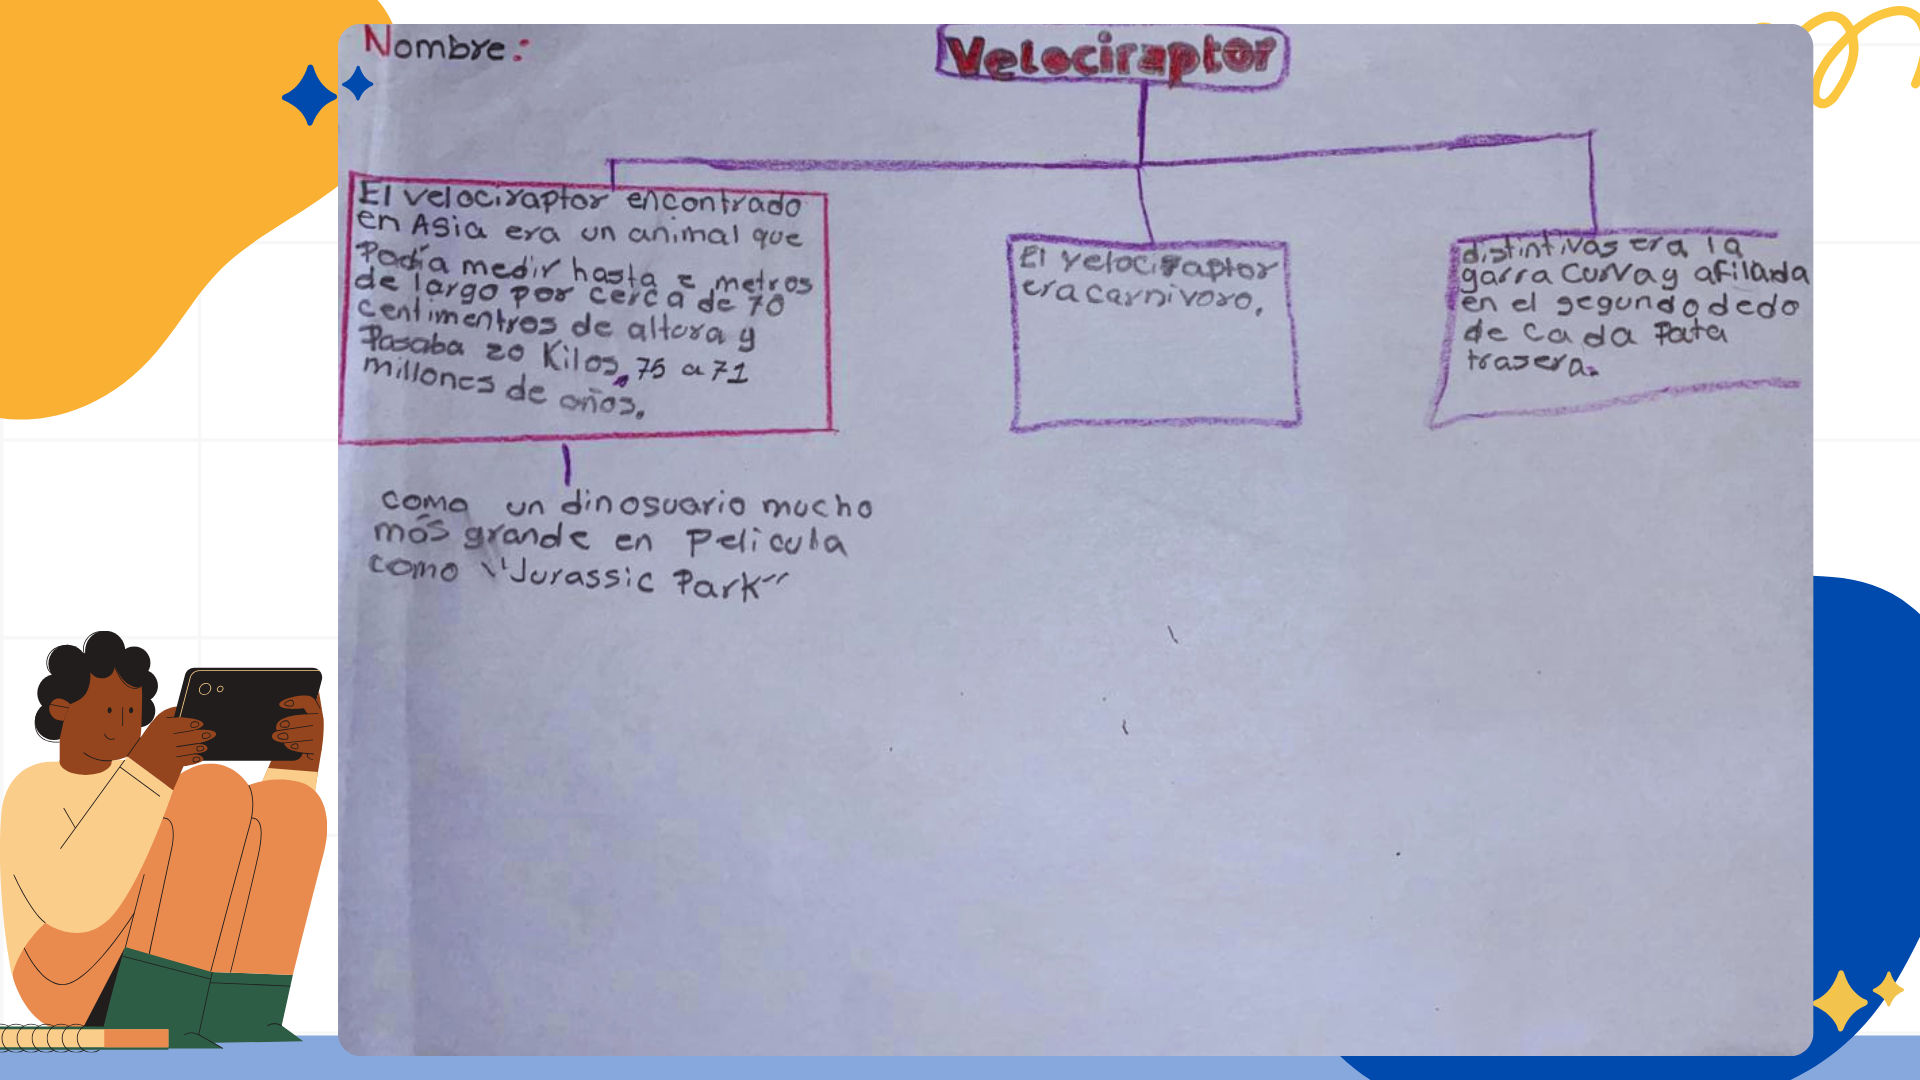 Nombre:
Velociraptor
El velociraptor encontrado
en Asia era un animal que
Podía medir hasta 2 metros
de largo por cerca de 70
centimentros de altura y
Pasaba 20 Kilos, 75 a 71
millones de años.
como un dinosuario mucho
más grande en Pelicula
como "Jurassic Park"
El velociraptor
era carnivoro.
distintivas era la
garra curva y afilada
en el segundo dedo
de cada Pata
trasera.